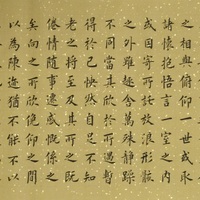 之相與俯仰一世或取
諸懷抱悟言一室之內
或因寄所託放浪形骸
之外雖趣舍萬殊靜躁
不同當其欣於所遇暫
得於己快然自足不知
老之將至及其所之既
倦情隨事遷感慨係之
矣向之所欣俛仰之間
以為陳迹猶不能不以